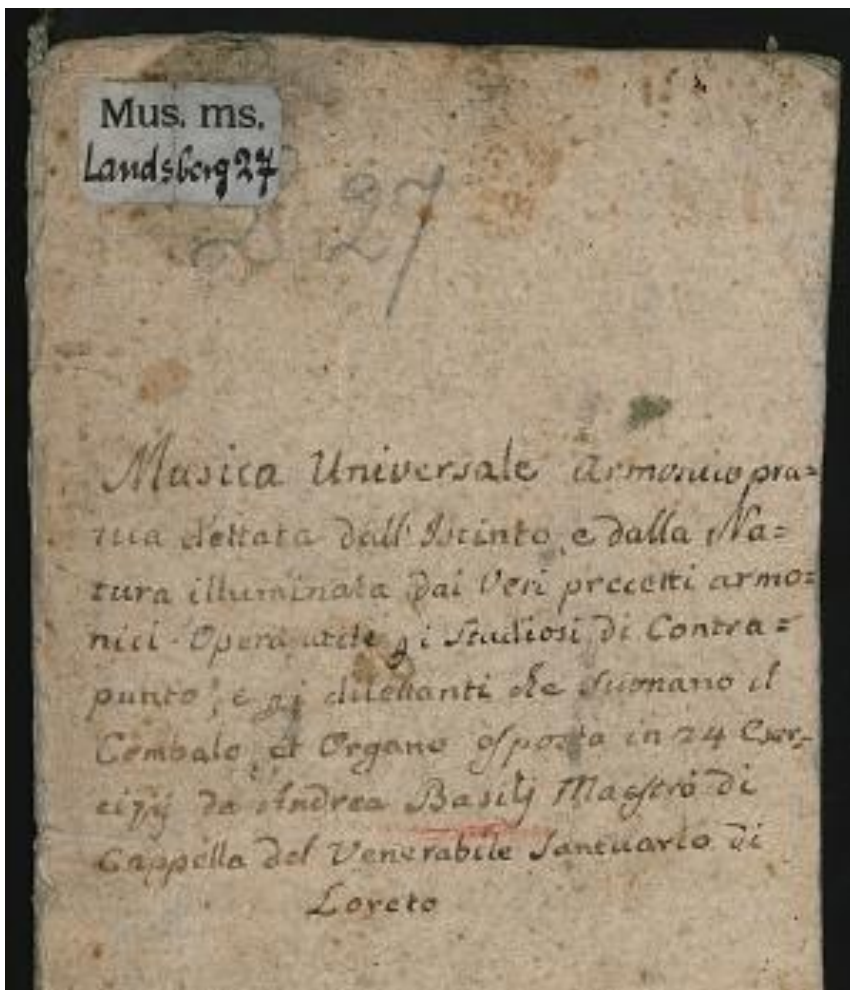 Mus. ms.
Landsberg 27
L 27
Musica Universale Armonico pra=
tica dettata dall'Istinto, e dalla Na=
tura illuminata dai Veri precetti armo=
nici. Opera utile p i Studiosi di Contra=
punto, e p i dilettanti che suonano il
Cembalo, et Organo esposta in 24 Eser=
cizij da Andrea Basilj Maestro di
Cappella del Venerabile Santuario di
Loreto